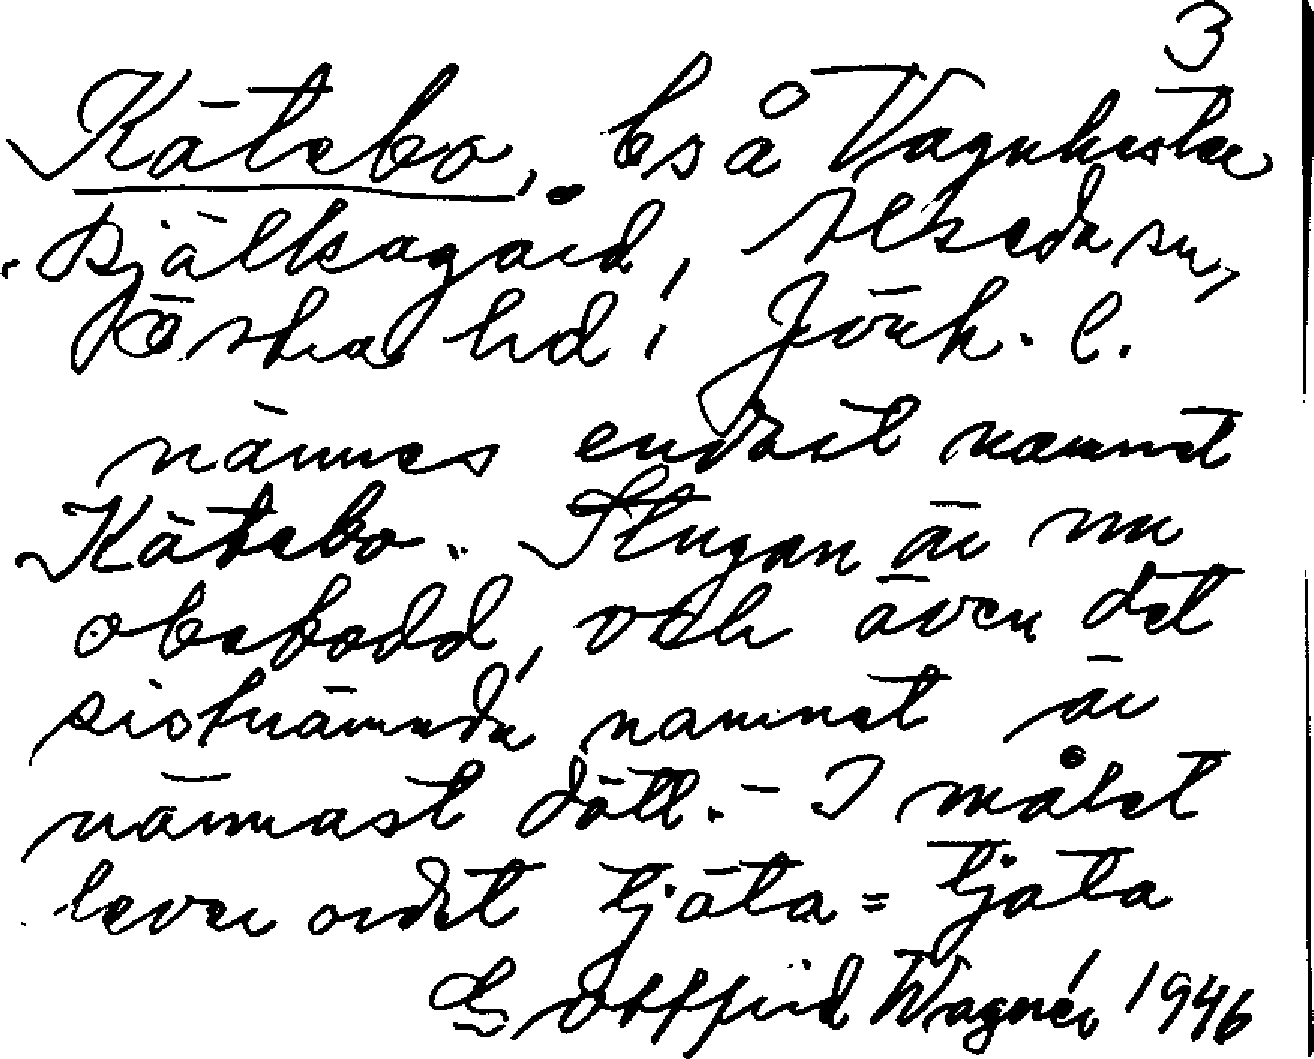 3
Kätebo, bs å Vagnhester
Bjälkagård, Alseda sn,
Östra hd, Jönk. l.
nännes endast namnet
Kätebo. Stugan är nu
obebodd, och även det
sistnämnda namnet är
närmast dött. - I målet
lever ordet tjäta = tjata
Gottfrid Wagnér 1946